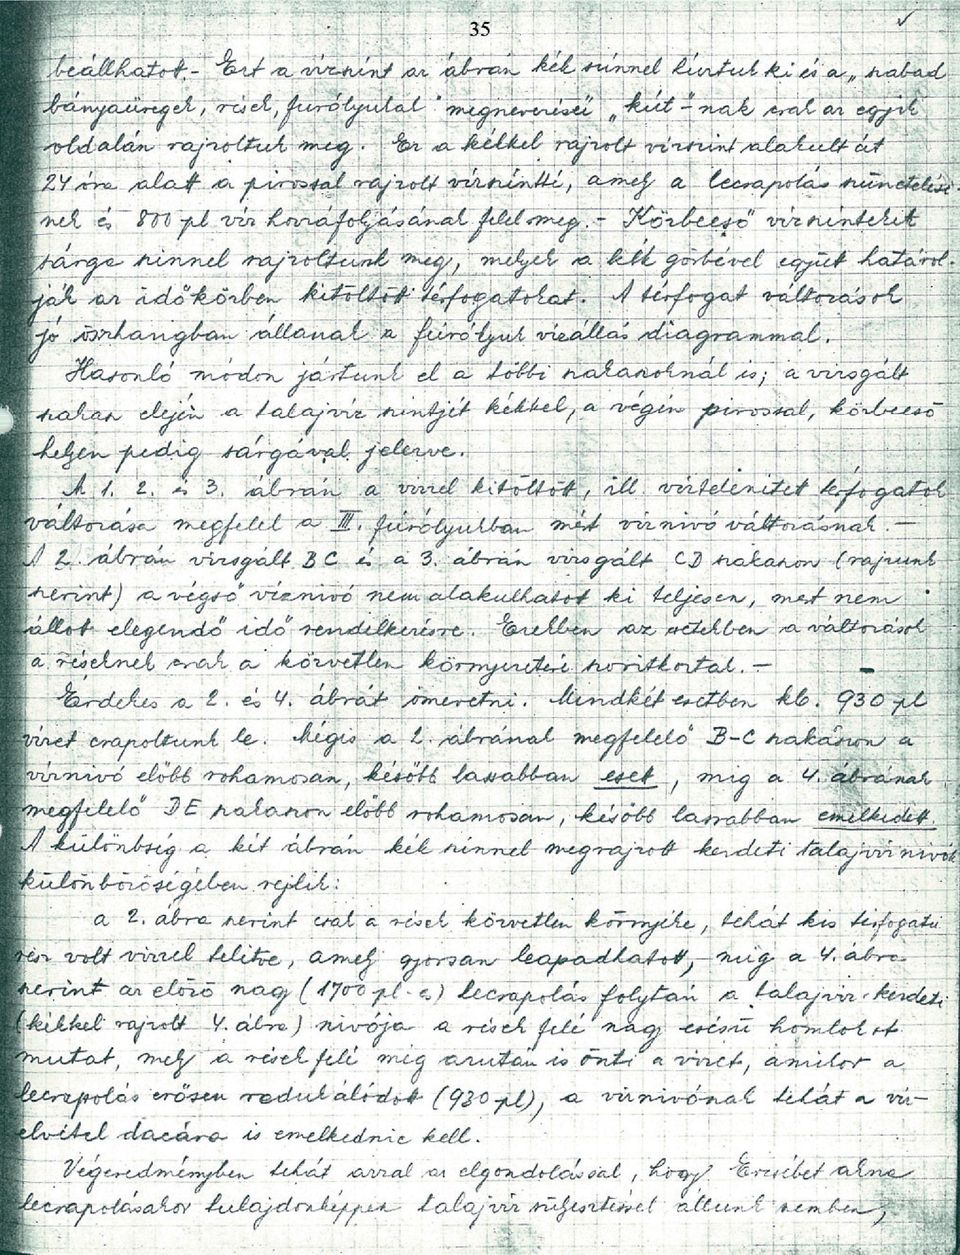 35
beállhatott - Ezt a vízszint az ábrán kék színnel húztuk ki és a „szabad
bányaüregek, rések, fúrólyukak" megnevezésű „kút"-nak csak az egyik
oldalán rajzoltuk meg. Ez a kékkel rajzolt vízszint alakult át
24 óra alatt a pirossal rajzolt vízszintté, amely a lecsapolás szünetelésé-
nek és 800 pl víz hozzáfolyásának felel meg. - Közbeeső vízszinteket
sárga színnel rajzoltunk meg, melyek a kék görbével együtt határol-
ják az időközben kitöltött térfogatokat. A térfogat változások
jó összhangban állanak a fúrólyuk vízállás diagrammal.
Hasonló módon jártunk el a többi szakasznál is; a vizsgált
szakasz elején a talajvíz szintjét kékkel, a végén pirossal, közbeeső
helyen pedig sárgával jelezve.
A 1. 2. és 3. ábrán a vízzel kitöltött, ill. víztelenített térfogatok
változása megfelel a III. fúrólyukban mért víznívó változásnak. -
A 2. ábrán vizsgált BC és a 3. ábrán vizsgált CD szakaszon (rajzunk
szerint) a végső víznívó nem alakulhatott ki teljesen, mert nem
állott elegendő idő rendelkezésre. Ezekben az esetekben a változások
a réseknek csak a közvetlen környezetére szorítkoztak. -
Érdekes a 2. és 4. ábrát összevetni. Mindkét esetben kb. 930 pl
vizet csapoltunk le. Mégis a 2. ábrának megfelelő B-C szakaszon a
víznívó előbb rohamosan, később lassabban esett, míg a 4. ábrának
megfelelő DE szakaszon előbb rohamosan, később lassabban emelkedett.
A különbség a két ábrán kék színnel megrajzolt kezdeti talajvíznívók
különbözőségében rejlik:
a 2. ábra szerint csak a rések közvetlen környéke, tehát kis térfogatú
rész volt vízzel telítve, amely gyorsan leapadhatott, - míg a 4. ábra
szerint az előző nagy (1700 pl-es) lecsapolás folytán a talajvíz kezdeti
(kékkel rajzolt 4. ábra) nívója a rések felé nagy esésű homlokot
mutat, mely a rések felé még azután is önti a vizet, amikor a
lecsapolás erősen redukálódott (930 pl), a víznívónak tehát a víz-
elvétel dacára is emelkednie kell.
Végeredményben tehát azzal az elgondolással, hogy Erzsébet akna
lecsapolásakor tulajdonképpen talajvíz süllyesztéssel állunk szemben,